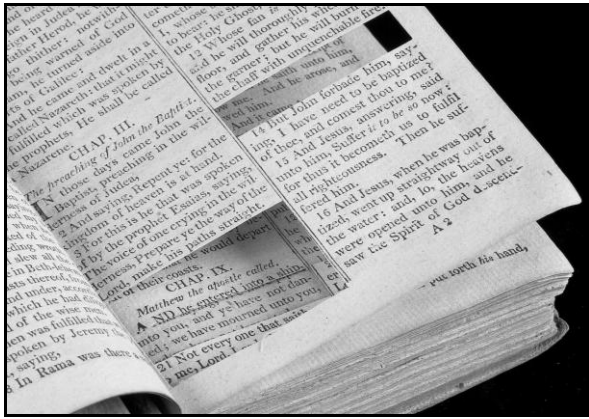 heard in Judea
father Herod, he
go thither: notwith-
being warned of God
am, he turned aside into
ts of Galilee:
he came and dwelt in a
called Nazareth: that it might
fulfilled which was spoken by
e prophets, He shall be called
Nazarene.
CHAP. III.
The preaching of John the Baptist.
IN those days came John the
Baptist, preaching in the wil-
erness of Judea,
2 And saying, Repent ye: for the
ingdom of heaven is at hand.
3 For this is he that was spoken
of by the prophet Esaias, saying,
The voice of one crying in the wil-
erness, Prepare ye the way of the
Lord, make his paths straight.
he would depart
of their coasts.
CHAP. IX.
Matthew the apostle called.
AND he entered into a ship,
unto you, and ye have not dan-
ed; we have mourned unto you,
21 Not every one that saith
me, Lord,
slew all
in Beth-lehem
sts thereof,
and under, accor
which he had di
d of the wise me
en was fulfilled tha
spoken by Jeremy
, saying,
In Rama was there a
I, whose
to bear: he s
the Holy Ghost,
12 Whose fan is
and he will thoroughly
floor, and gather his whe
the garner; but he will burn
the chaff with unquenchable fire.
saith unto him,
me. And he arose, and
wed him.
And it came
14 But John forbade him, say-
ing, I have need to be baptized
of thee, and comest thou to me?
15 And Jesus, answering, said
unto him, Suffer it to be so now:
for thus it becometh us to fulfil
all righteousness. Then he suf-
fered him.
16 And Jesus, when he was bap-
tized, went up straightway out of
the water: and, lo, the heavens
were opened unto him, and he
saw the Spirit of God descend-
A 2
put forth his hand,